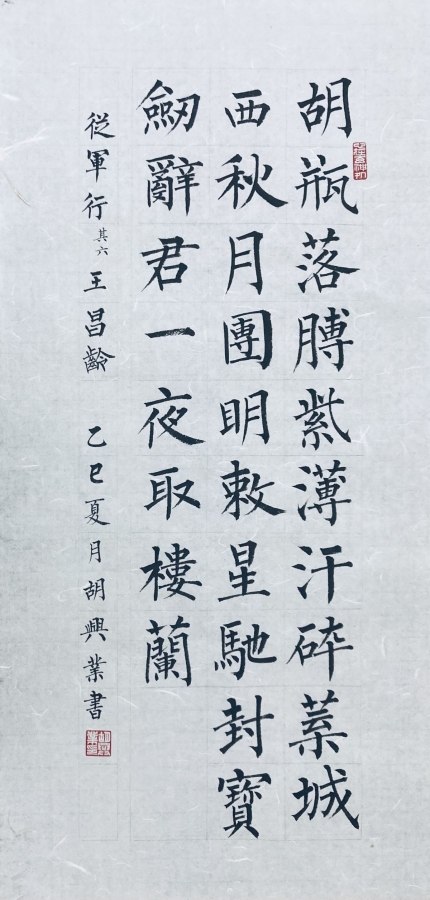 胡瓶落膊紫薄汗碎葉城
西秋月團眀敕星馳封寶
劒辭君一夜取樓蘭
從軍行其六王昌齡 乙巳夏月胡興業書